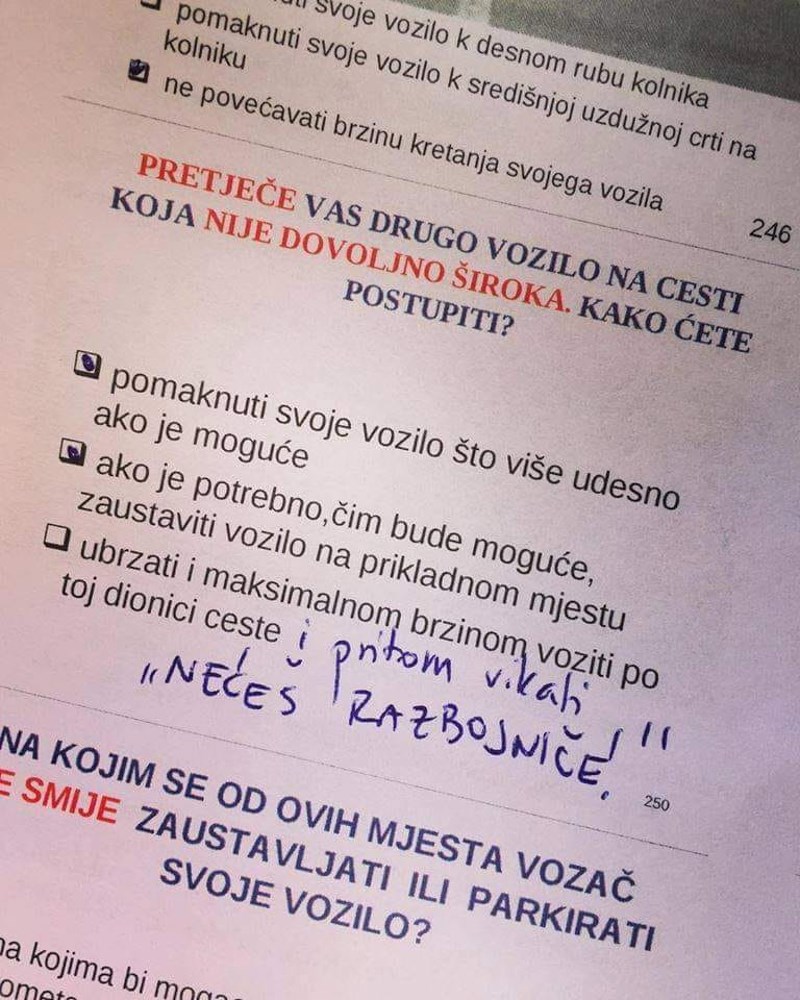 svoje vozilo k desnom rubu kolnika
pomaknuti svoje vozilo k središnjoj uzdužnoj crti na
kolniku
ne povećavati brzinu kretanja svojega vozila
246
PRETJEČE VAS DRUGO VOZILO NA CESTI
KOJA NIJE DOVOLJNO ŠIROKA. KAKO ĆETE
POSTUPITI?
pomaknuti svoje vozilo što više udesno
ako je moguće
ako je potrebno,čim bude moguće,
zaustaviti vozilo na prikladnom mjestu
ubrzati i maksimalnom brzinom voziti po
toj dionici ceste i pritom vikati
"NEĆEŠ RAZBOJNIČE!"
250
NA KOJIM SE OD OVIH MJESTA VOZAČ
SMIJE ZAUSTAVLJATI ILI PARKIRATI
SVOJE VOZILO?
na kojima bi